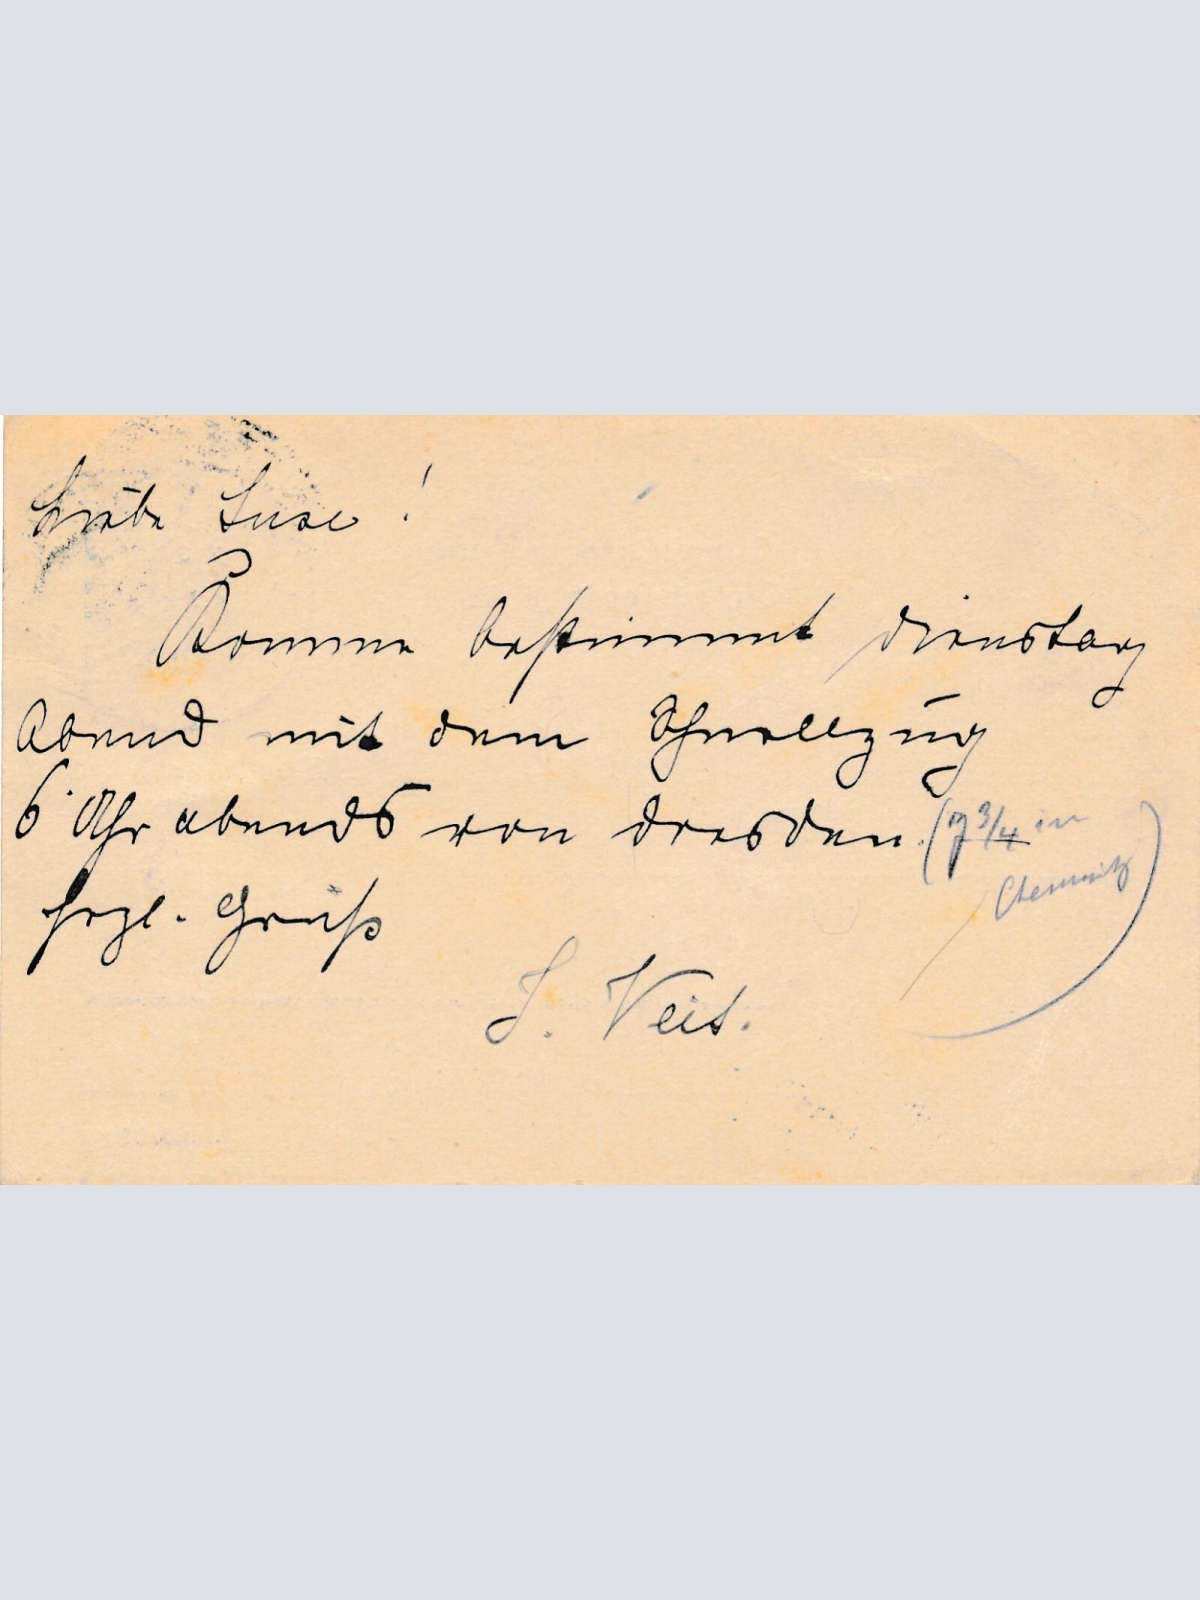 Liebe Luse!
Komme bestimmt Dienstag
Abend mit dem Schnellzug
6 Uhr abends von Dresden. (7 3/4 in
Chemnitz)
Hrzl. Gruß
J. Veit.